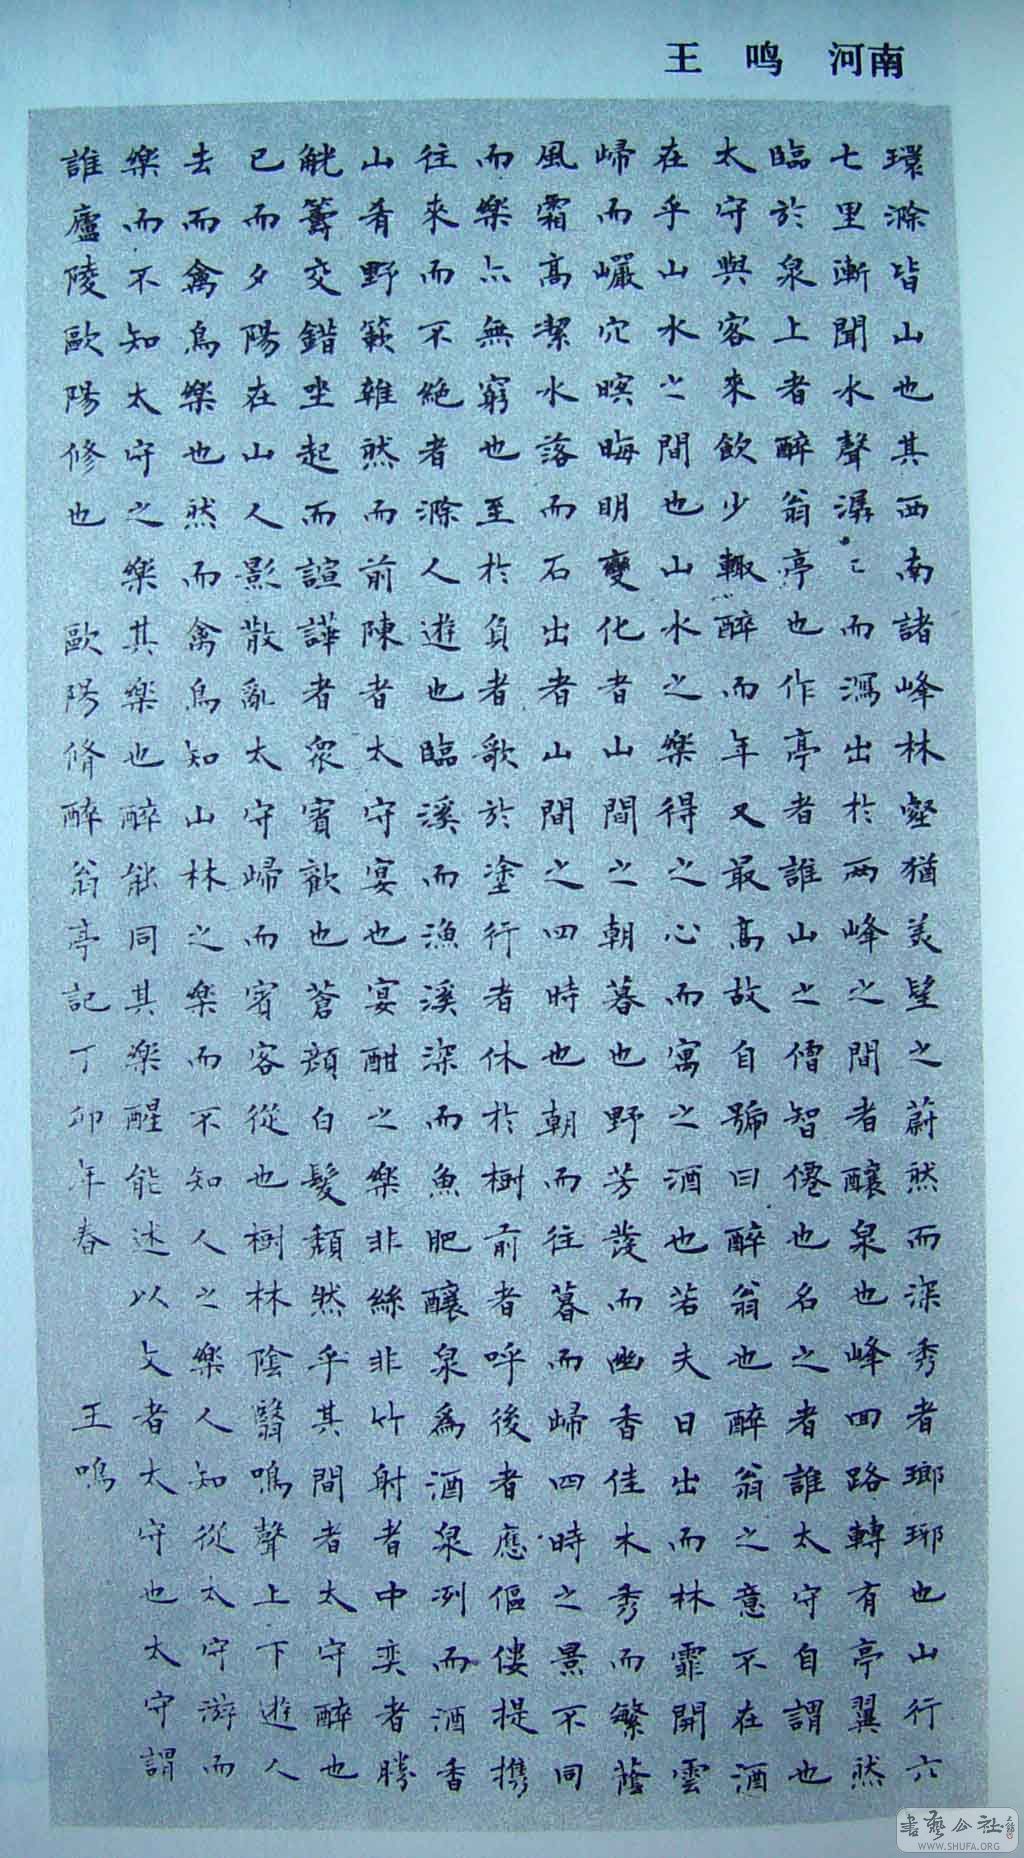 王 鸣 河南
環滁皆山也其西南諸峰林壑猶美望之蔚然而深秀者瑯琊也山行六
七里漸聞水聲潺〻而瀉出於兩峰之間者釀泉也峰回路轉有亭翼然
臨於泉上者醉翁亭也作亭者誰山之僧智僊也名之者誰太守自謂也
太守與客來飲少輒醉而年又最高故自號曰醉翁也醉翁之意不在酒
在乎山水之間也山水之樂得之心而寓之酒也若夫日出而林霏開雲
歸而巖穴暝晦明變化者山間之朝暮也野芳發而幽香佳木秀而繁蔭
風霜高潔水落而石出者山間之四時也朝而往暮而歸四時之景不同
而樂亦無窮也至於負者歌於塗行者休於樹前者呼後者應傴僂提携
往來而不絕者滁人遊也臨溪而漁溪深而魚肥釀泉為酒泉洌而酒香
山肴野蔌雜然而前陳者太守宴也宴酣之樂非絲非竹射者中奕者勝
觥籌交錯坐起而諠譁者眾賓歡也蒼顏白髮頹然乎其間者太守醉也
已而夕陽在山人影散亂太守歸而賓客從也樹林陰翳鳴聲上下遊人
去而禽鳥樂也然而禽鳥知山林之樂而不知人之樂人知從太守游而
樂而不知太守之樂其樂也醉能同其樂醒能述以文者太守也太守謂
誰廬陵歐陽修也 歐陽脩醉翁亭記丁卯年春 王鳴
書藝公社
WWW.SHUFA.ORG